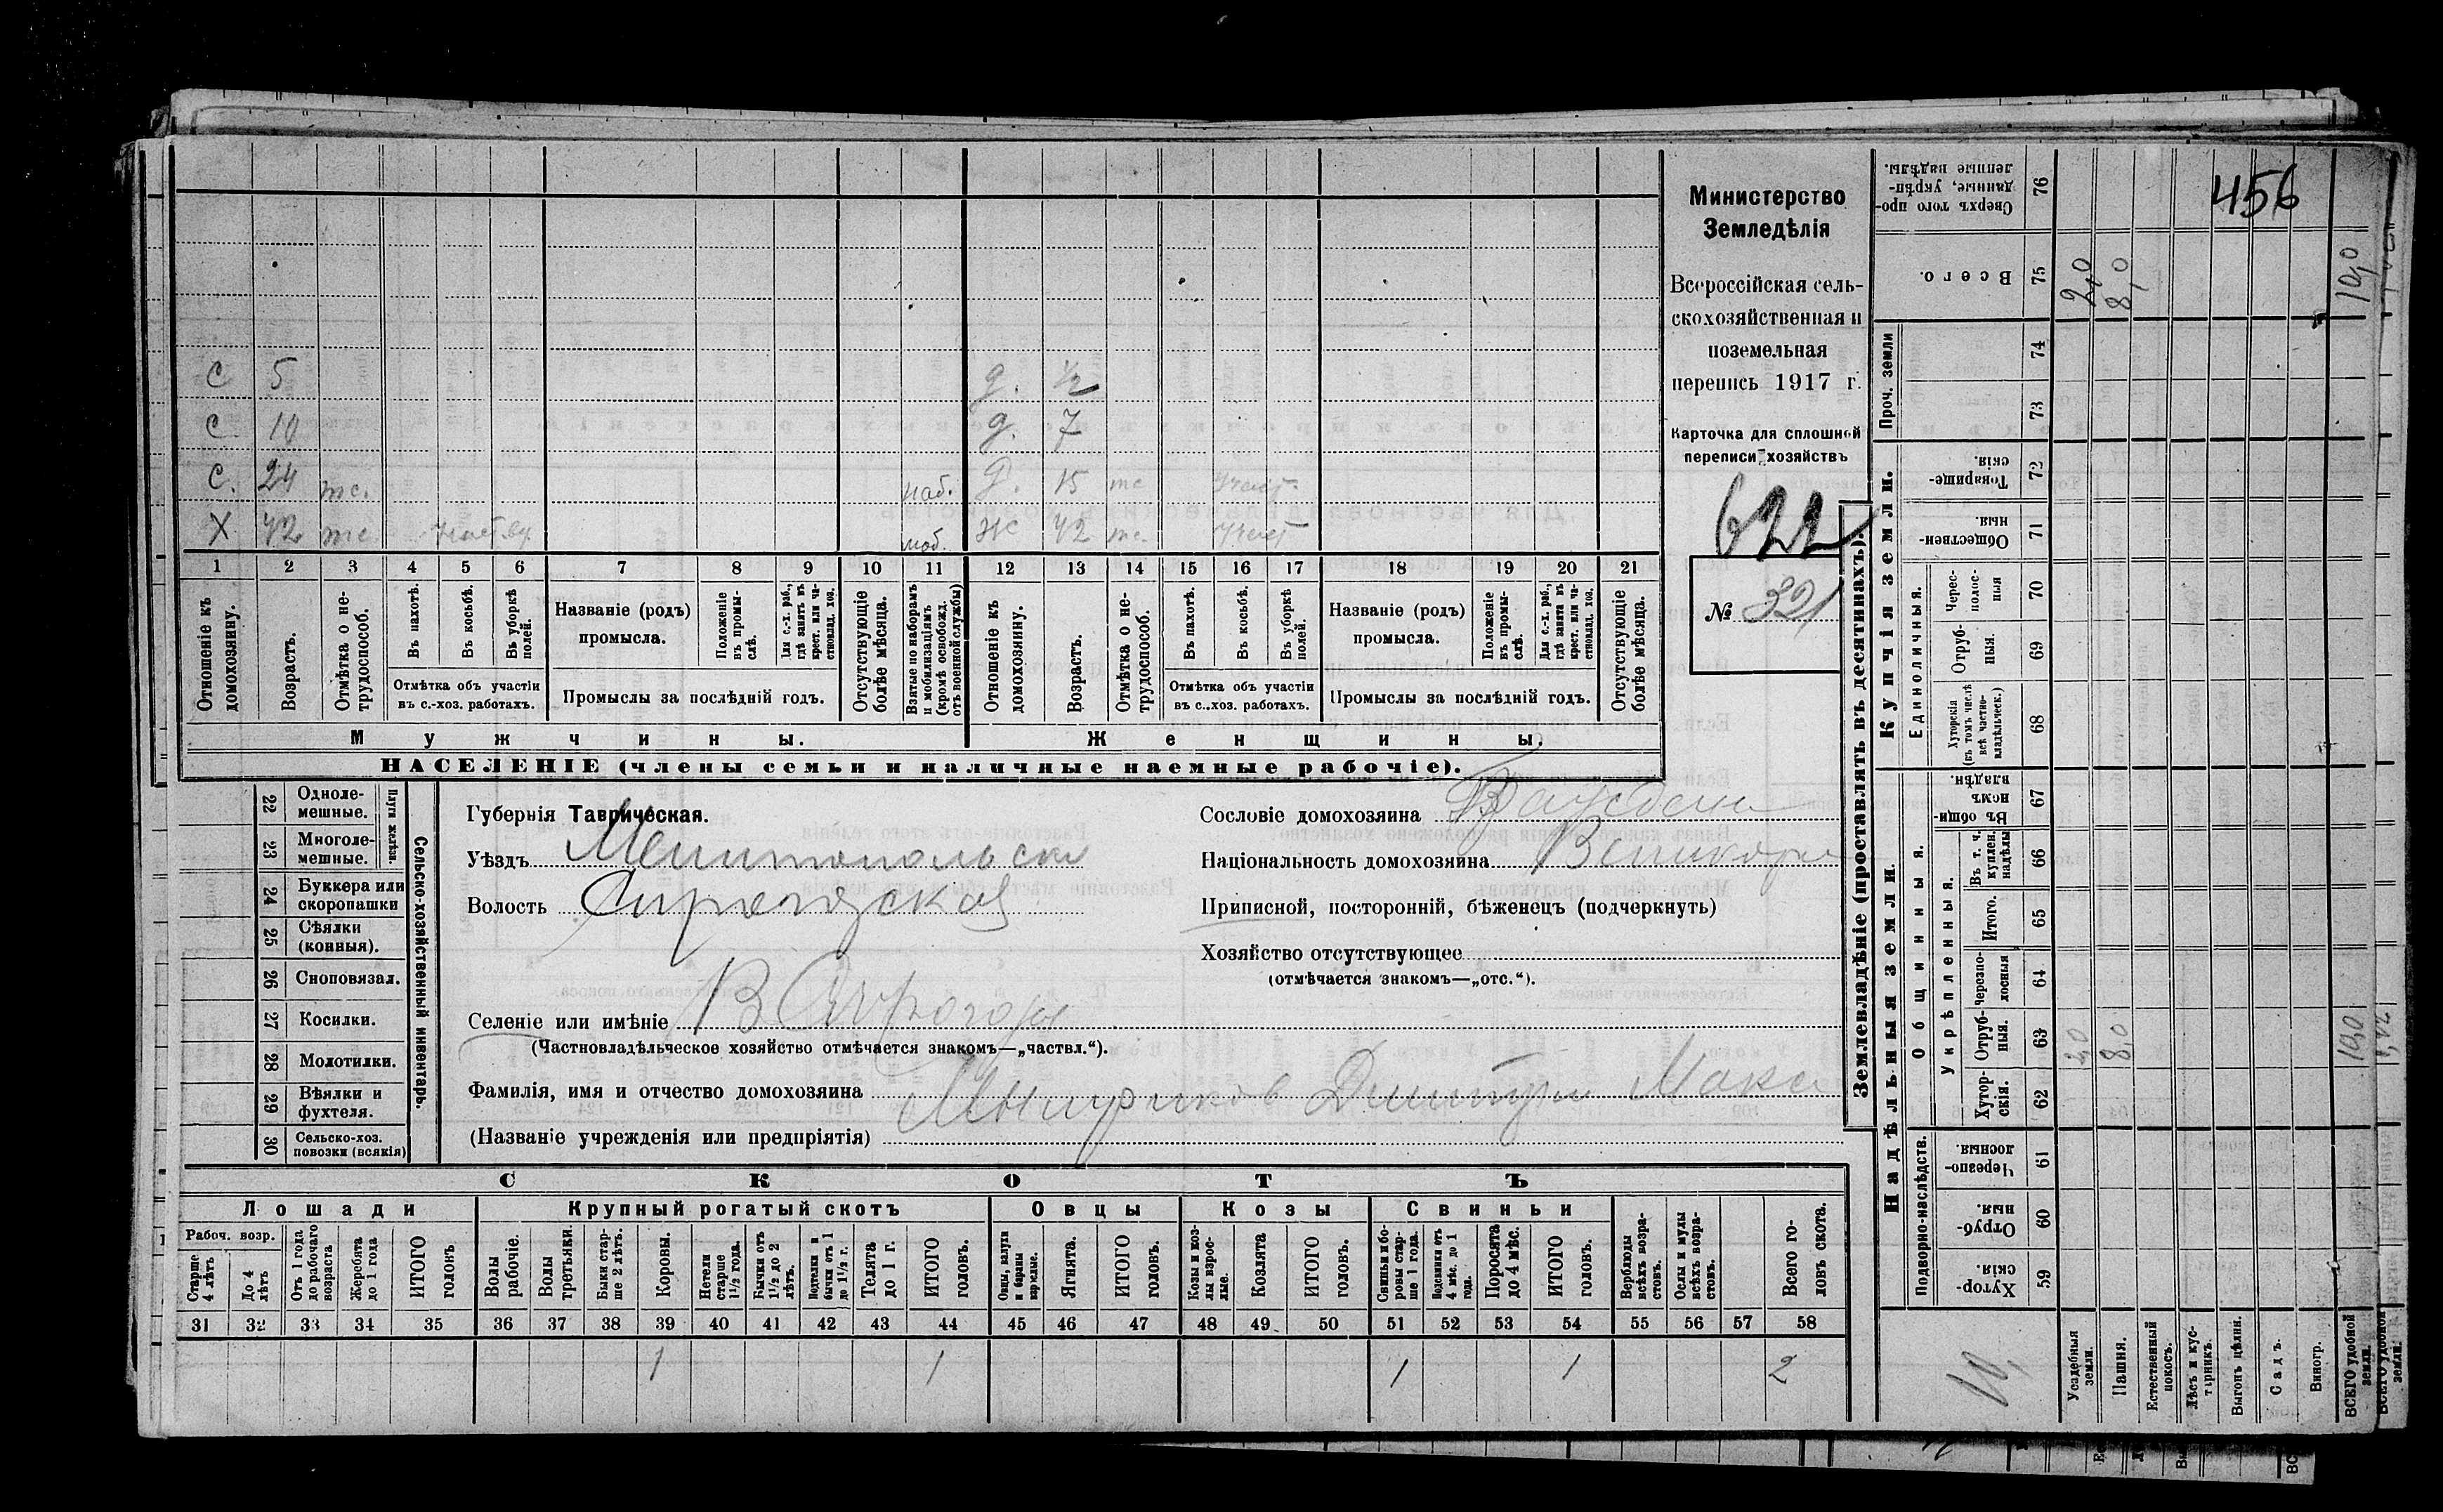 456
Министерство
Земледѣлія
Всероссійская сель-
скохозяйственная и
поземельная
перепись 1917 г.
Карточка для сплошной
переписи хозяйствъ
622
№ 321
С 5 д. ½
С 10 д. 7
С. 24 наб. Д. 15
Х 42 моб. ж 42
1 2 3 4 5 6 7 8 9 10 11 12 13 14 15 16 17 18 19 20 21
Отношеніе къ домохозяину.
Возрастъ.
Отмѣтка о не-трудоспособ.
Въ пахотѣ.
Въ косьбѣ.
Въ уборкѣ полей.
Отмѣтка объ участіи
въ с.-хоз. работахъ.
Названіе (родъ)
промысла.
Положеніе въ промы-слѣ.
Для с.-х. раб., гдѣ занятъ въ крест. или ча-стновлад. хоз.
Промыслы за послѣдній годъ.
Отсутствующіе болѣе мѣсяца.
Взятые по наборамъ и мобилизаціямъ (кромѣ освобожд. отъ военной службы)
Отношеніе къ домохозяину.
Возрастъ.
Отмѣтка о не-трудоспособ.
Въ пахотѣ.
Въ косьбѣ.
Въ уборкѣ полей.
Отмѣтка объ участіи
въ с.-хоз. работахъ.
Названіе (родъ)
промысла.
Положеніе въ промы-слѣ.
Для с.-х. раб., гдѣ занятъ въ крест. или ча-стновлад. хоз.
Промыслы за послѣдній годъ.
Отсутствующіе болѣе мѣсяца.
Мужчины. Женщины.
НАСЕЛЕНІЕ (члены семьи и наличные наемные рабочіе).
Сельско-хозяйственный инвентарь.
Плуги желѣзн.
22 Одноле-мешные.
23 Многоле-мешные.
24 Буккера или скоропашки
25 Сѣялки (конныя).
26 Сноповязал.
27 Косилки.
28 Молотилки.
29 Вѣялки и фухтеля.
30 Сельско-хоз. повозки (всякія)
Губернія Таврическая.
Уѣздъ Мелитопольски
Волость
Селеніе или имѣніе
(Частновладѣльческое хозяйство отмѣчается знакомъ—„частвл.“).
Фамилія, имя и отчество домохозяина Дмитри Макс
(Названіе учрежденія или предпріятія)
Сословіе домохозяина
Національность домохозяина Великор
Приписной, посторонній, бѣженецъ (подчеркнуть)
Хозяйство отсутствующее
(отмѣчается знакомъ—„отс.“).
СКОТЪ
Лошади Крупный рогатый скотъ Овцы Козы Свиньи
Рабоч. возр.
Старше 4 лѣтъ
До 4 лѣтъ
Отъ 1 года до рабочаго возраста
Жеребята до 1 года
ИТОГО головъ
Волы рабочіе.
Волы третьяки.
Быки стар-ше 2 лѣтъ.
Коровы.
Нетели старше 1½ года.
Бычки отъ 1½ до 2 лѣтъ.
Подтелки и бычки отъ 1 до 1½ г.
Телята до 1 г.
ИТОГО головъ.
Овцы, валухи и бараны взрослые.
Ягнята.
ИТОГО головъ.
Козы и коз-лы взрос-лые.
Козлята
ИТОГО головъ.
Свиньи и бо-ровы стар-ше 1 года.
Подсвинки отъ 4 мѣс. до 1 года.
Поросята до 4 мѣс.
ИТОГО головъ.
Верблюды всѣхъ возра-стовъ.
Ослы и мулы всѣхъ возра-стовъ.
Всего го-ловъ скота.
31 32 33 34 35 36 37 38 39 40 41 42 43 44 45 46 47 48 49 50 51 52 53 54 55 56 57 58
1 1 1 1 2
Землевладѣніе (проставлять въ десятинахъ).
Проч. земли
Купчія земли.
Единоличныя.
Надѣльныя земли.
Общинныя.
Укрѣпленныя.
Подворно-наслѣдств.
Сверхъ того про-данные, укрѣп-ленные надѣлы. 76
Всего. 75 2,0 8,0 10,0
74
73
Товарище-скія. 72
Обществен-ныя. 71
Черес-полос-ныя 70
Отруб-ныя. 69
Хуторскія (въ томъ числѣ всѣ частно-владѣльческ.) 68
Въ общи-номъ владѣн. 67
Въ т. ч. куплен. надѣлы 66
Итого. 65
Черезпо-лосныя 64
Отруб-ныя. 63 2,0 8,0 10,0
Хутор-скія. 62
Черезпо-лосныя. 61
Отруб-ныя. 60
Хутор-скія. 59
Усадебныя земли.
Пашня.
Естественный покосъ.
Лѣсъ и кус-тарникъ.
Выгонъ цѣлин.
Садъ.
Виногр.
ВСЕГО удобной земли.
ВСЕГО удобной земли.